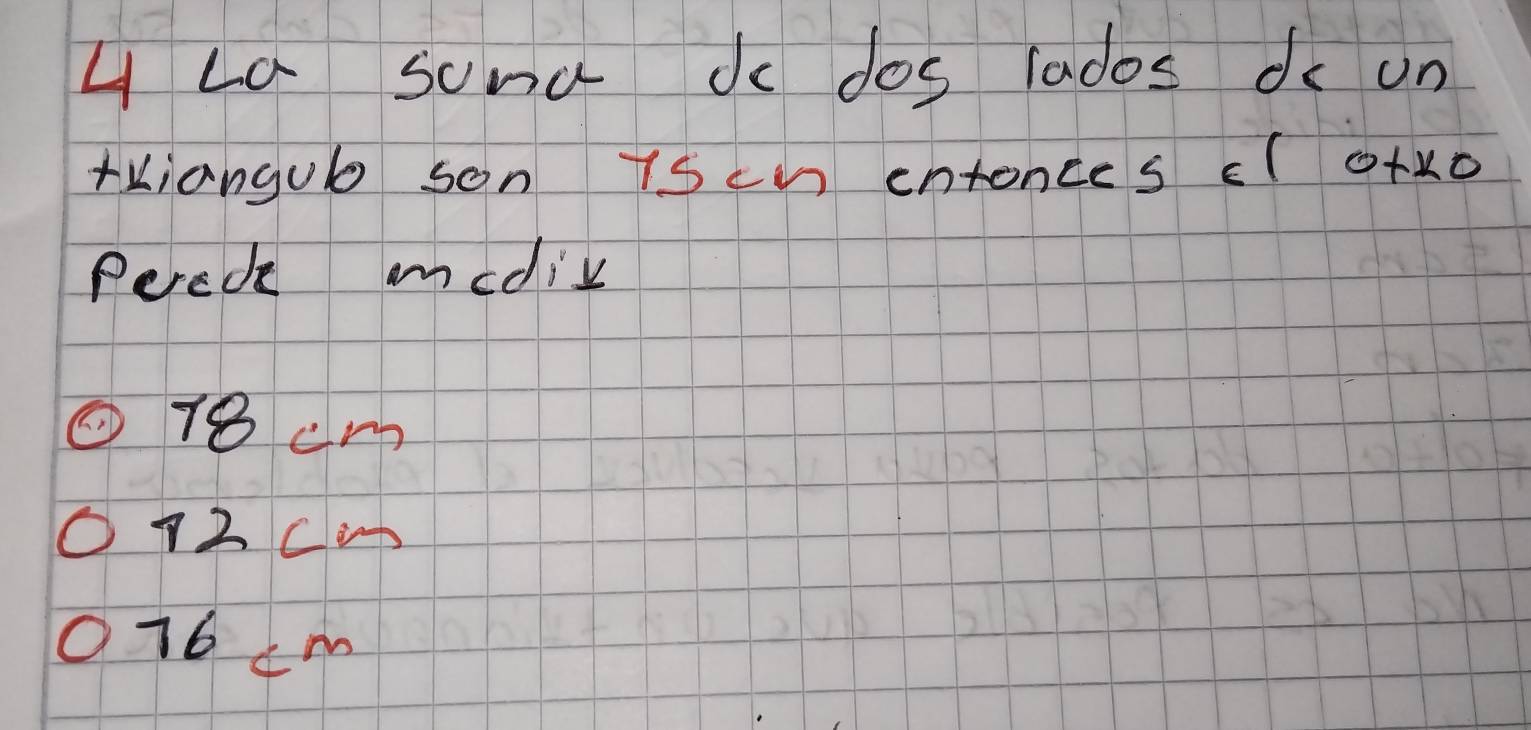 4 La suma de dos lados de un
triangulo son 15cm entonces el otro
Perede medir
18 cm
12 cm
16 cm